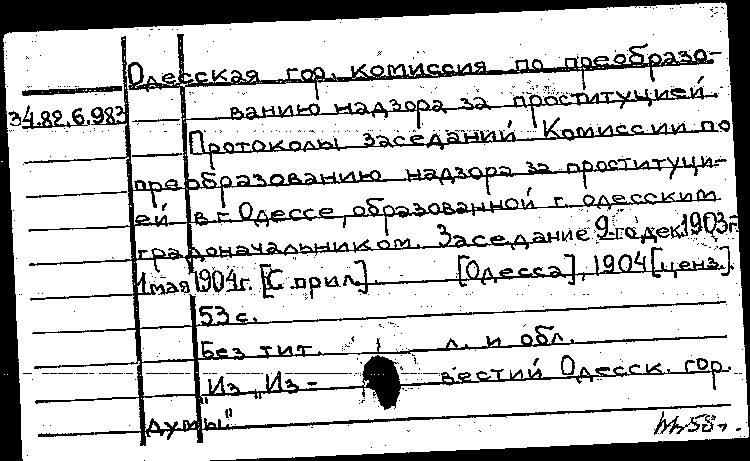 Одесская гор. комиссия по преобразо-
34.82.6.983 ванию надзора за проституцией.
Протоколы заседаний Комиссии по
преобразованию надзора за проституци-
ей в г. Одессе, образованной г. одесским
градоначальником. Заседание 9-го дек. 1903 г.
1 мая 1904 г. [С прил.] [Одесса], 1904 [ценз.].
53 с.
Без тит. л. и обл.
"Из „Из- вестий Одесск. гор.
думы"
58 г.